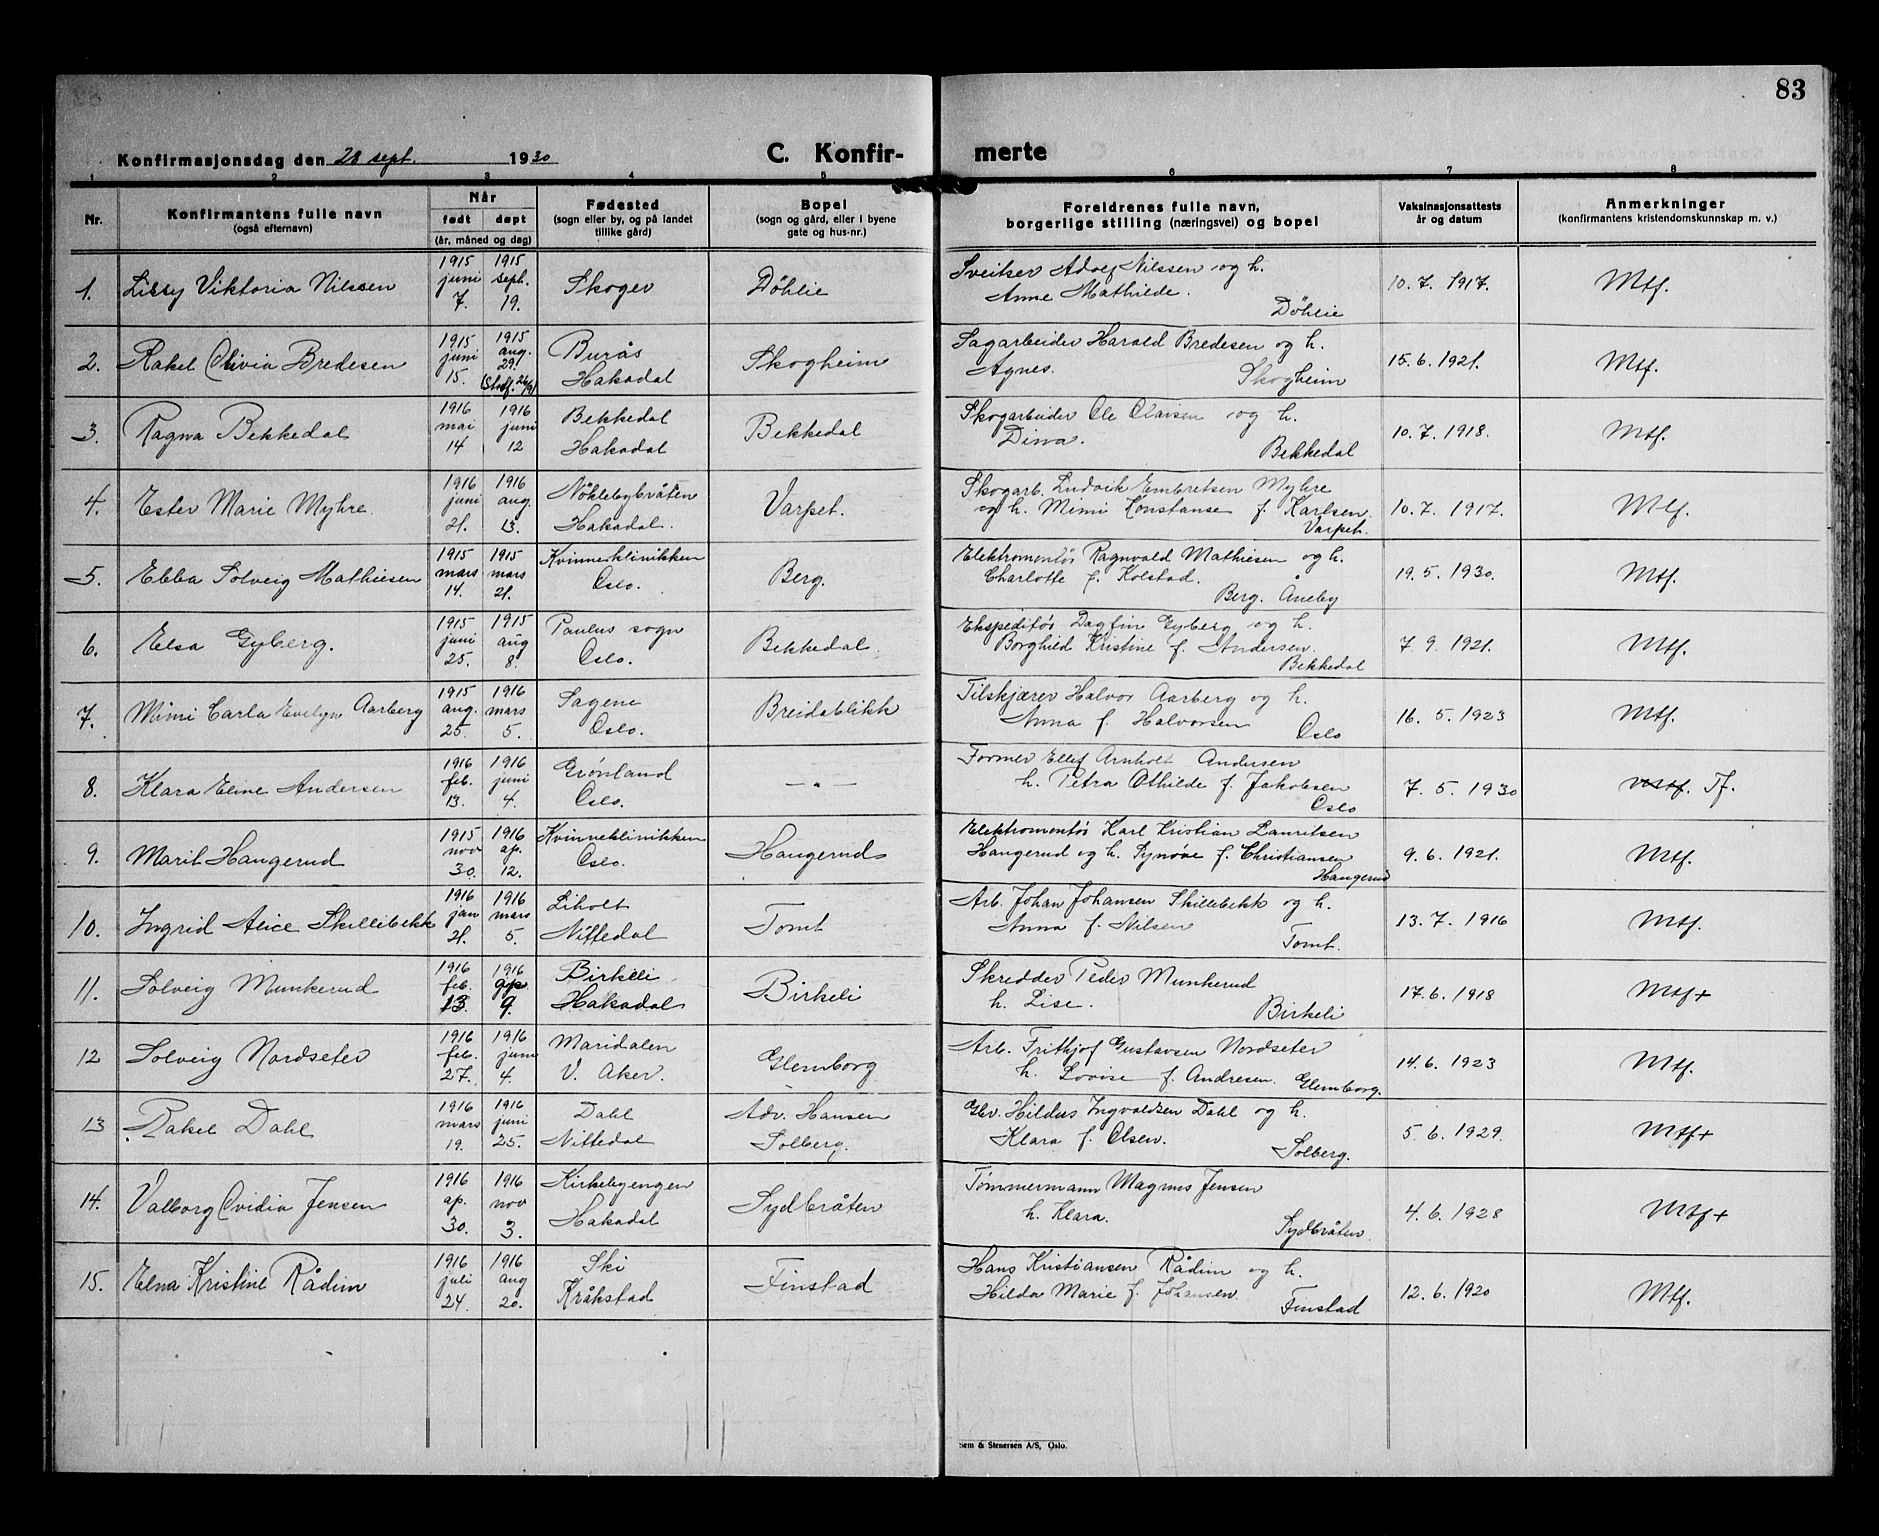 83
Konfirmasjonsdag den 28 sept. 1930
C. Konfir- merte
1 2 3 4 5 6 7 8
Nr.
Konfirmantens fulle navn
(også efternavn)
Når
født døpt
(år, måned og dag)
Fødested
(sogn eller by, og på landet
tillike gård)
Bopel
(sogn og gård, eller i byene
gate og hus-nr.)
Foreldrenes fulle navn,
borgerlige stilling (næringsvei) og bopel
Vaksinasjonsattests
år og datum
Anmerkninger
(konfirmantens kristendomskunnskap m. v.)
1. Lissy Viktoria Nilssen
1915 juni 7.
1915 sept. 19.
Skoger
Döhlie
Sveitser Adolf Nilssen og h.
Anne Mathilde.
Döhlie
10. 7. 1917.
Mtf.
2. Rakel Olivia Bredesen
1915 juni 15.
1915 aug. 29.
(Stadf. 26/9)
Burås
Hakadal
Skogheim
Sagarbeider Harald Bredesen og h.
Agnes.
Skogheim
15. 6. 1921.
Mtf.
3. Ragna Bekkedal
1916 mai 14
1916 juni 12
Bekkedal
Hakadal
Bekkedal
Skogarbeider Ole Olaisen og h.
Dina.
Bekkedal
10. 7. 1918.
Mtf.
4. Ester Marie Myhre.
1916 juni 21.
1916 aug. 13.
Nöklebybråten
Hakadal.
Varpet.
Skogarb. Ludvik Embretsen Myhre
og h. Mimi Konstanse f. Karlsen.
Varpet.
10. 7. 1917.
Mtf.
5. Ebba Solveig Mathiesen
1915 mars 14.
1915 mars 21.
Kvinneklinikken
Oslo.
Berg.
Elektromontös Ragnvald Mathiesen og h.
Charlotte f. Kolstad.
Berg. Åneby
19. 5. 1930.
Mtf.
6. Elsa Gyberg.
1915 juni 25.
1915 aug 8.
Paulus sogn
Oslo.
Bekkedal.
Ekspeditös Dagfin Gyberg og h.
Borghild Kristine f. Andersen.
Bekkedal
7. 9. 1921.
Mtf.
7. Mimi Carla Evelyn Aarberg
1915 aug. 25.
1916 mars 5.
Sagene
Oslo.
Breidablikk
Tilskjærer Halvor Aarberg og h.
Anna f. Halvorsen
Oslo
16. 5. 1923
Mtf.
8. Klara Eline Andersen
1916 feb. 13.
1916 juni 4.
Grönland
Oslo.
— „ —
Former Ellef Arnholt Andersen
h. Petra Othilde f. Jakobsen
Oslo
7. 5. 1930
Tf.
9. Marit Haugerud
1915 nov 30.
1916 ap. 12.
Kvinneklinikken
Oslo.
Haugerud
Elektromontös Karl Kristian Lauritsen
Haugerud og h. Synöve f. Christiansen
Haugerud
9. 6. 1921.
Mtf.
10. Ingrid Alice Skillebekk
1916 jan 21.
1916 mars 5.
Liholt
Nittedal
Tomt
Arb. Johan Johansen Skillebekk og h.
Anna f. Nilsen
Tomt.
13. 7. 1916
Mtf.
11. Solveig Munkerud
1916 feb. 13.
1916 ap. 9.
Birkeli
Hakadal
Birkeli
Skredder Peder Munkerud
h. Lise.
Birkeli
17. 6. 1918
Mtf+
12 Solveig Nordseter
1916 feb. 27.
1916 juni 4.
Maridalen
V. Aker.
Glemborg
Arb. Frithjof Gustavsen Nordseter
h. Lovise f. Andresen. Glemborg.
14. 6. 1923
Mtf.
13 Rakel Dahl
1916 mars 19.
1916 juni 25.
Dahl
Nittedal
Adv. Hansen
Solberg.
Gbr. Hildus Ingvaldsen Dahl og h.
Klara f. Olsen.
Solberg.
5. 6. 1929.
Mtf+
14. Valborg Ovidia Jensen
1916 ap. 30.
1916 nov 3.
Kirkebyengen
Hakadal
Sydbråten
Tømmermann Magnus Jensen
h. Klara.
Sydbråten.
4. 6. 1928
Mtf+
15. Elna Kristine Rådim
1916 juli 24.
1916 aug 20.
Ski
Kråkstad
Finstad
Hans Kristiansen Rådim og h.
Hilda Marie f. Johansen.
Finstad
12. 6. 1920
Mtf.
Sem & Stenersen A/S, Oslo.